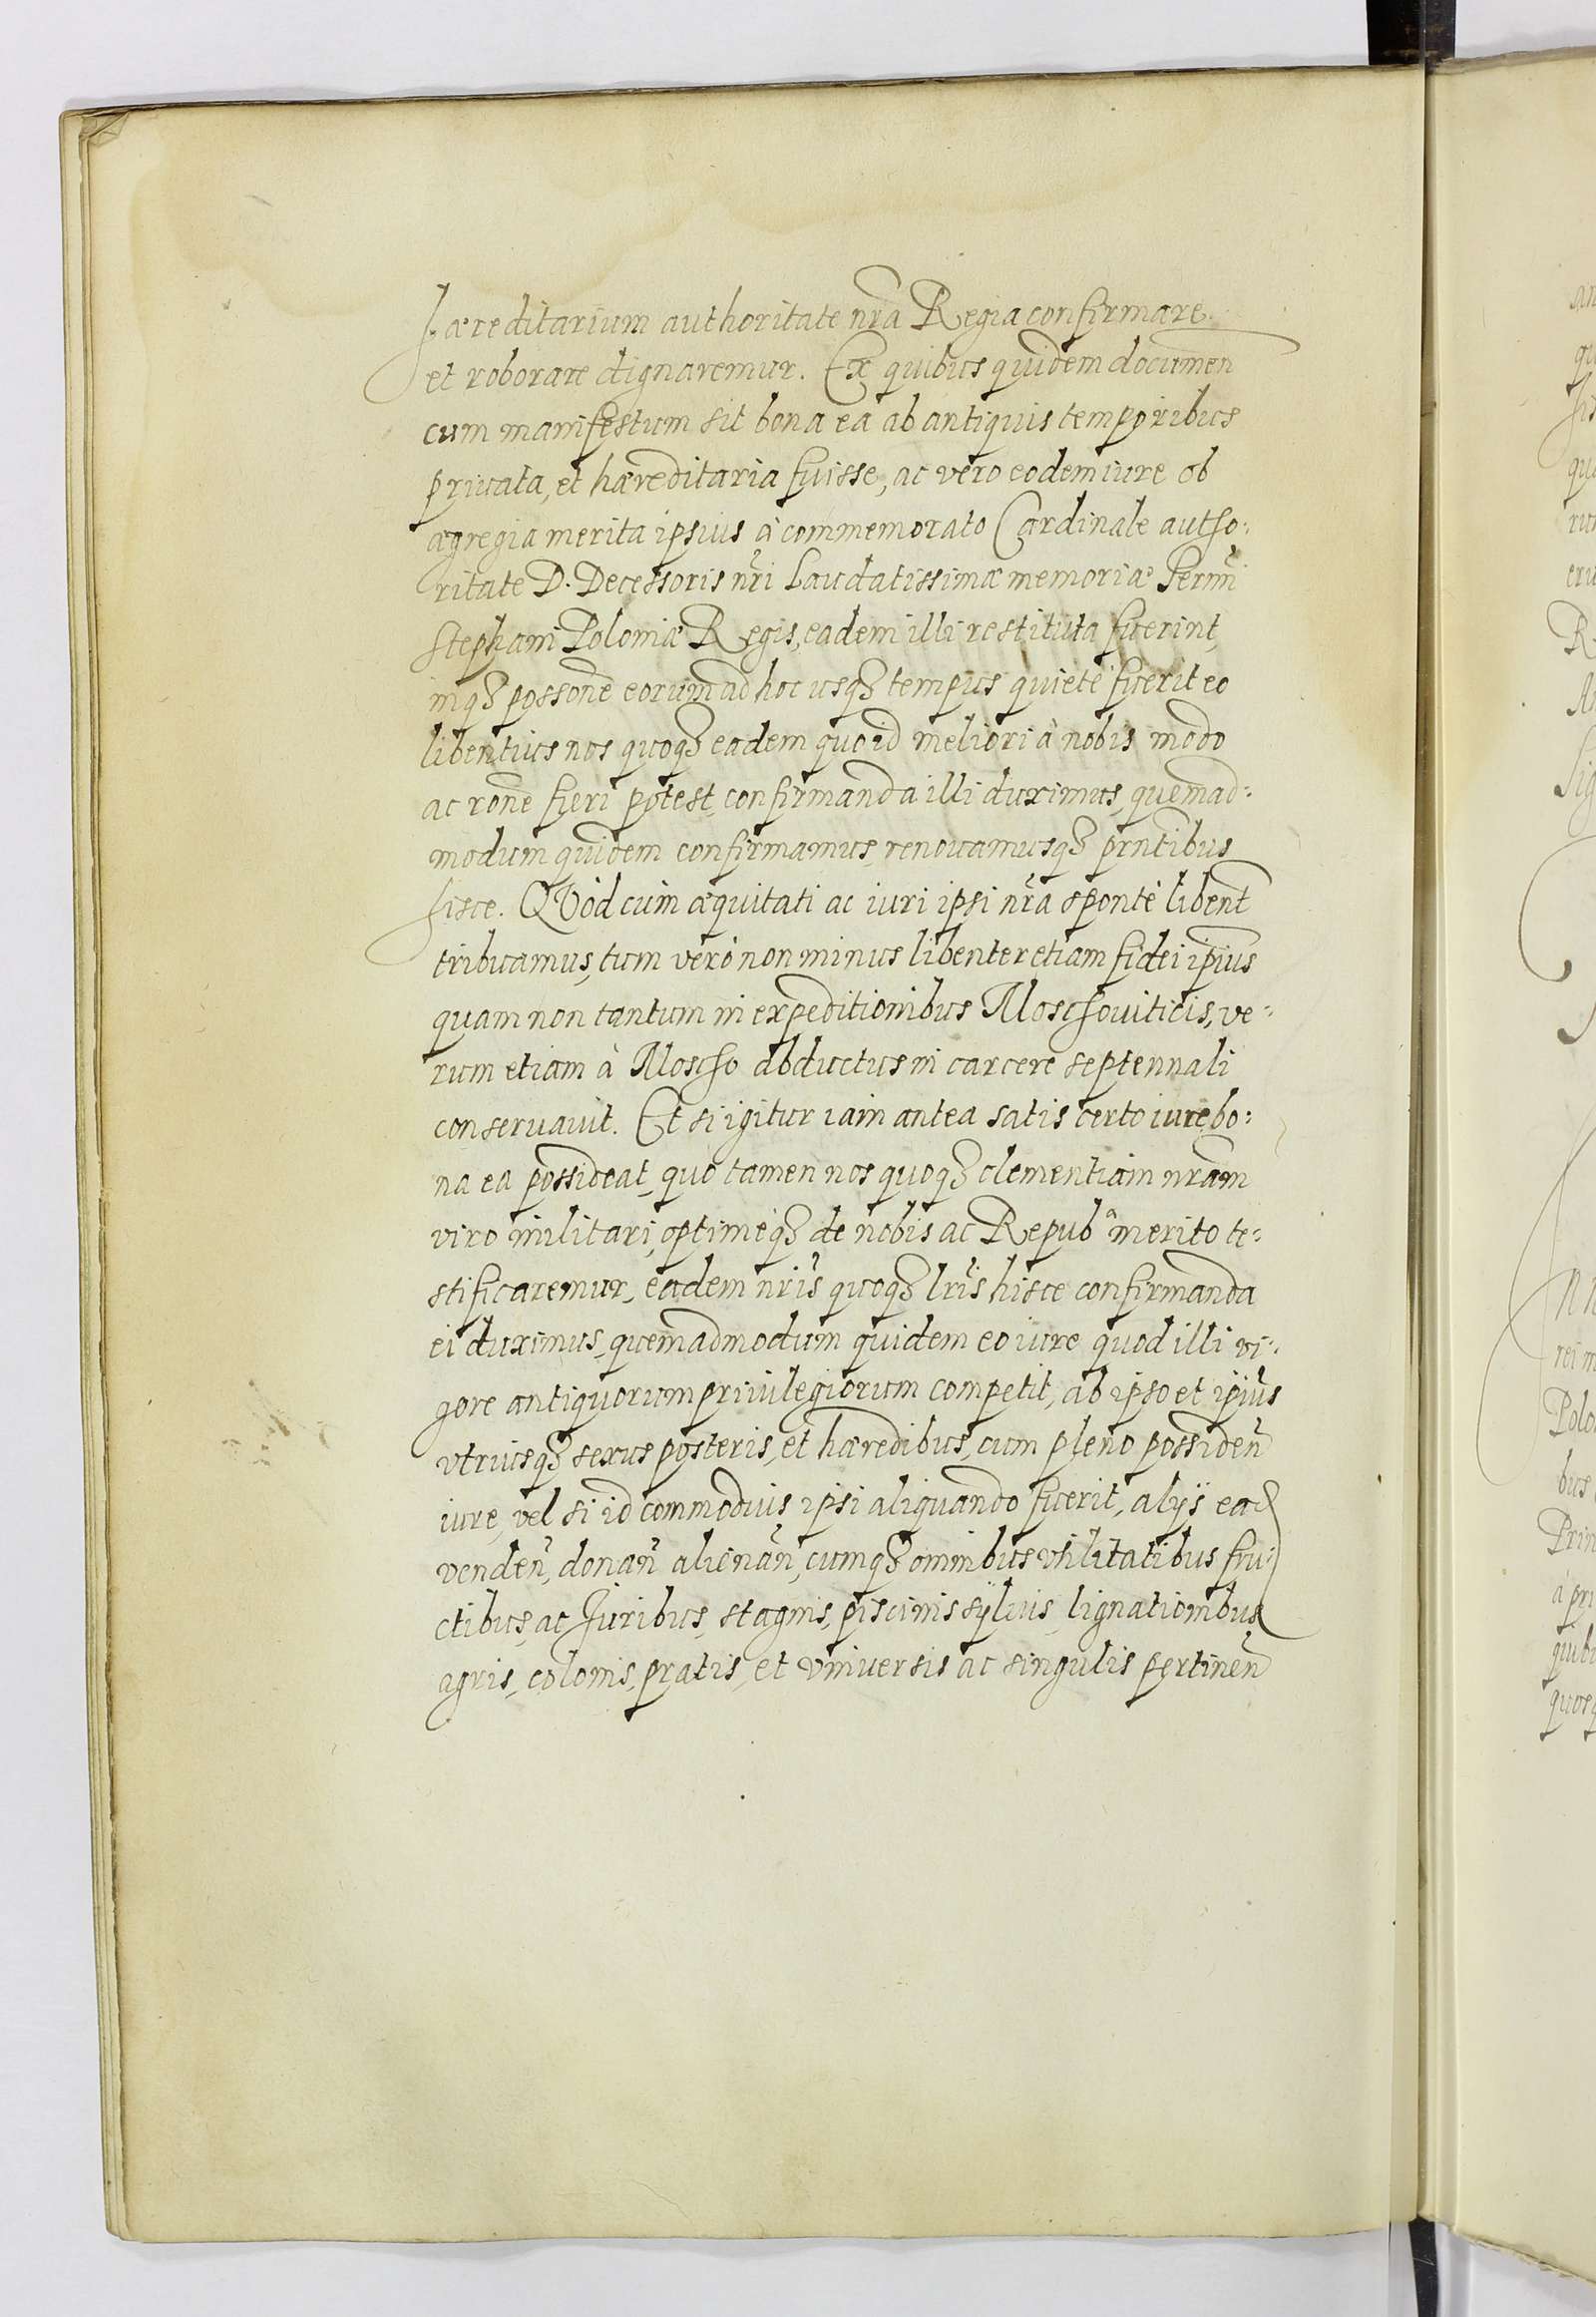 hæreditarium authoritate nrã Regia confirmare
et roborare dignaremur. Ex quibus quidem documen
cum manifestum sit bona ea ab antiquis temporibus
priuata, et hæreditaria fuisse, ac vero eodem iure ob
ægregia merita ipsius à commemorato Cardinale autho:
ritate D. Decessoris nr̃i Laudatissimæ memoriæ Sermĩ
Stephani Poloniæ Regis, eadem illi restituta fuerint,
inqȝ possonẽ eorum ad hoc usqȝ tempus quietè fuerit eo
libentius nos quoqȝ eadem quo id meliori à nobis modo
ac ronẽ fieri potest, confirmanda illi duximus, quemad:
modum quidem confirmamus, renouamusqȝ prñtibus
hisce. QVòd cùm æquitati ac iuri ipsi nr̃a spontè libent̃
tribuamus, tum verò non minus libenter etiam fidei ip̃ius
quam non tantum in expeditionibus Moschouiticis, ve:
rum etiam à Moscho abductus in carcere septennali
conseruauit. Et si igitur iam antea satis certo iure bo:
na ea possideat, quò tamen nos quoqȝ clementiam nrãm
viro militari, optimèqȝ de nobis ac Repubᵃ merito te:
stificaremur, eadem nrĩs quoqȝ lrĩs hisce confirmanda
ei duximus, quemadmodum quidem eo iure quod illi vi:
gore antiquorum priuilegiorum competit, ab ipso et ip̃ius
vtriusqȝ sexus posteris, et hæredibus, cum pleno possideñ
iure, vel si id commodius ipsi aliquando fuerit, alijs ead
vendeñ, donañ alienañ, cumqȝ omnibus vtilitatibus fru:
ctibus, ac Juribus, stagnis, piscinis sÿluis, lignationibus
agris, colonis, pratis, et vniuersis ac singulis pertineñ